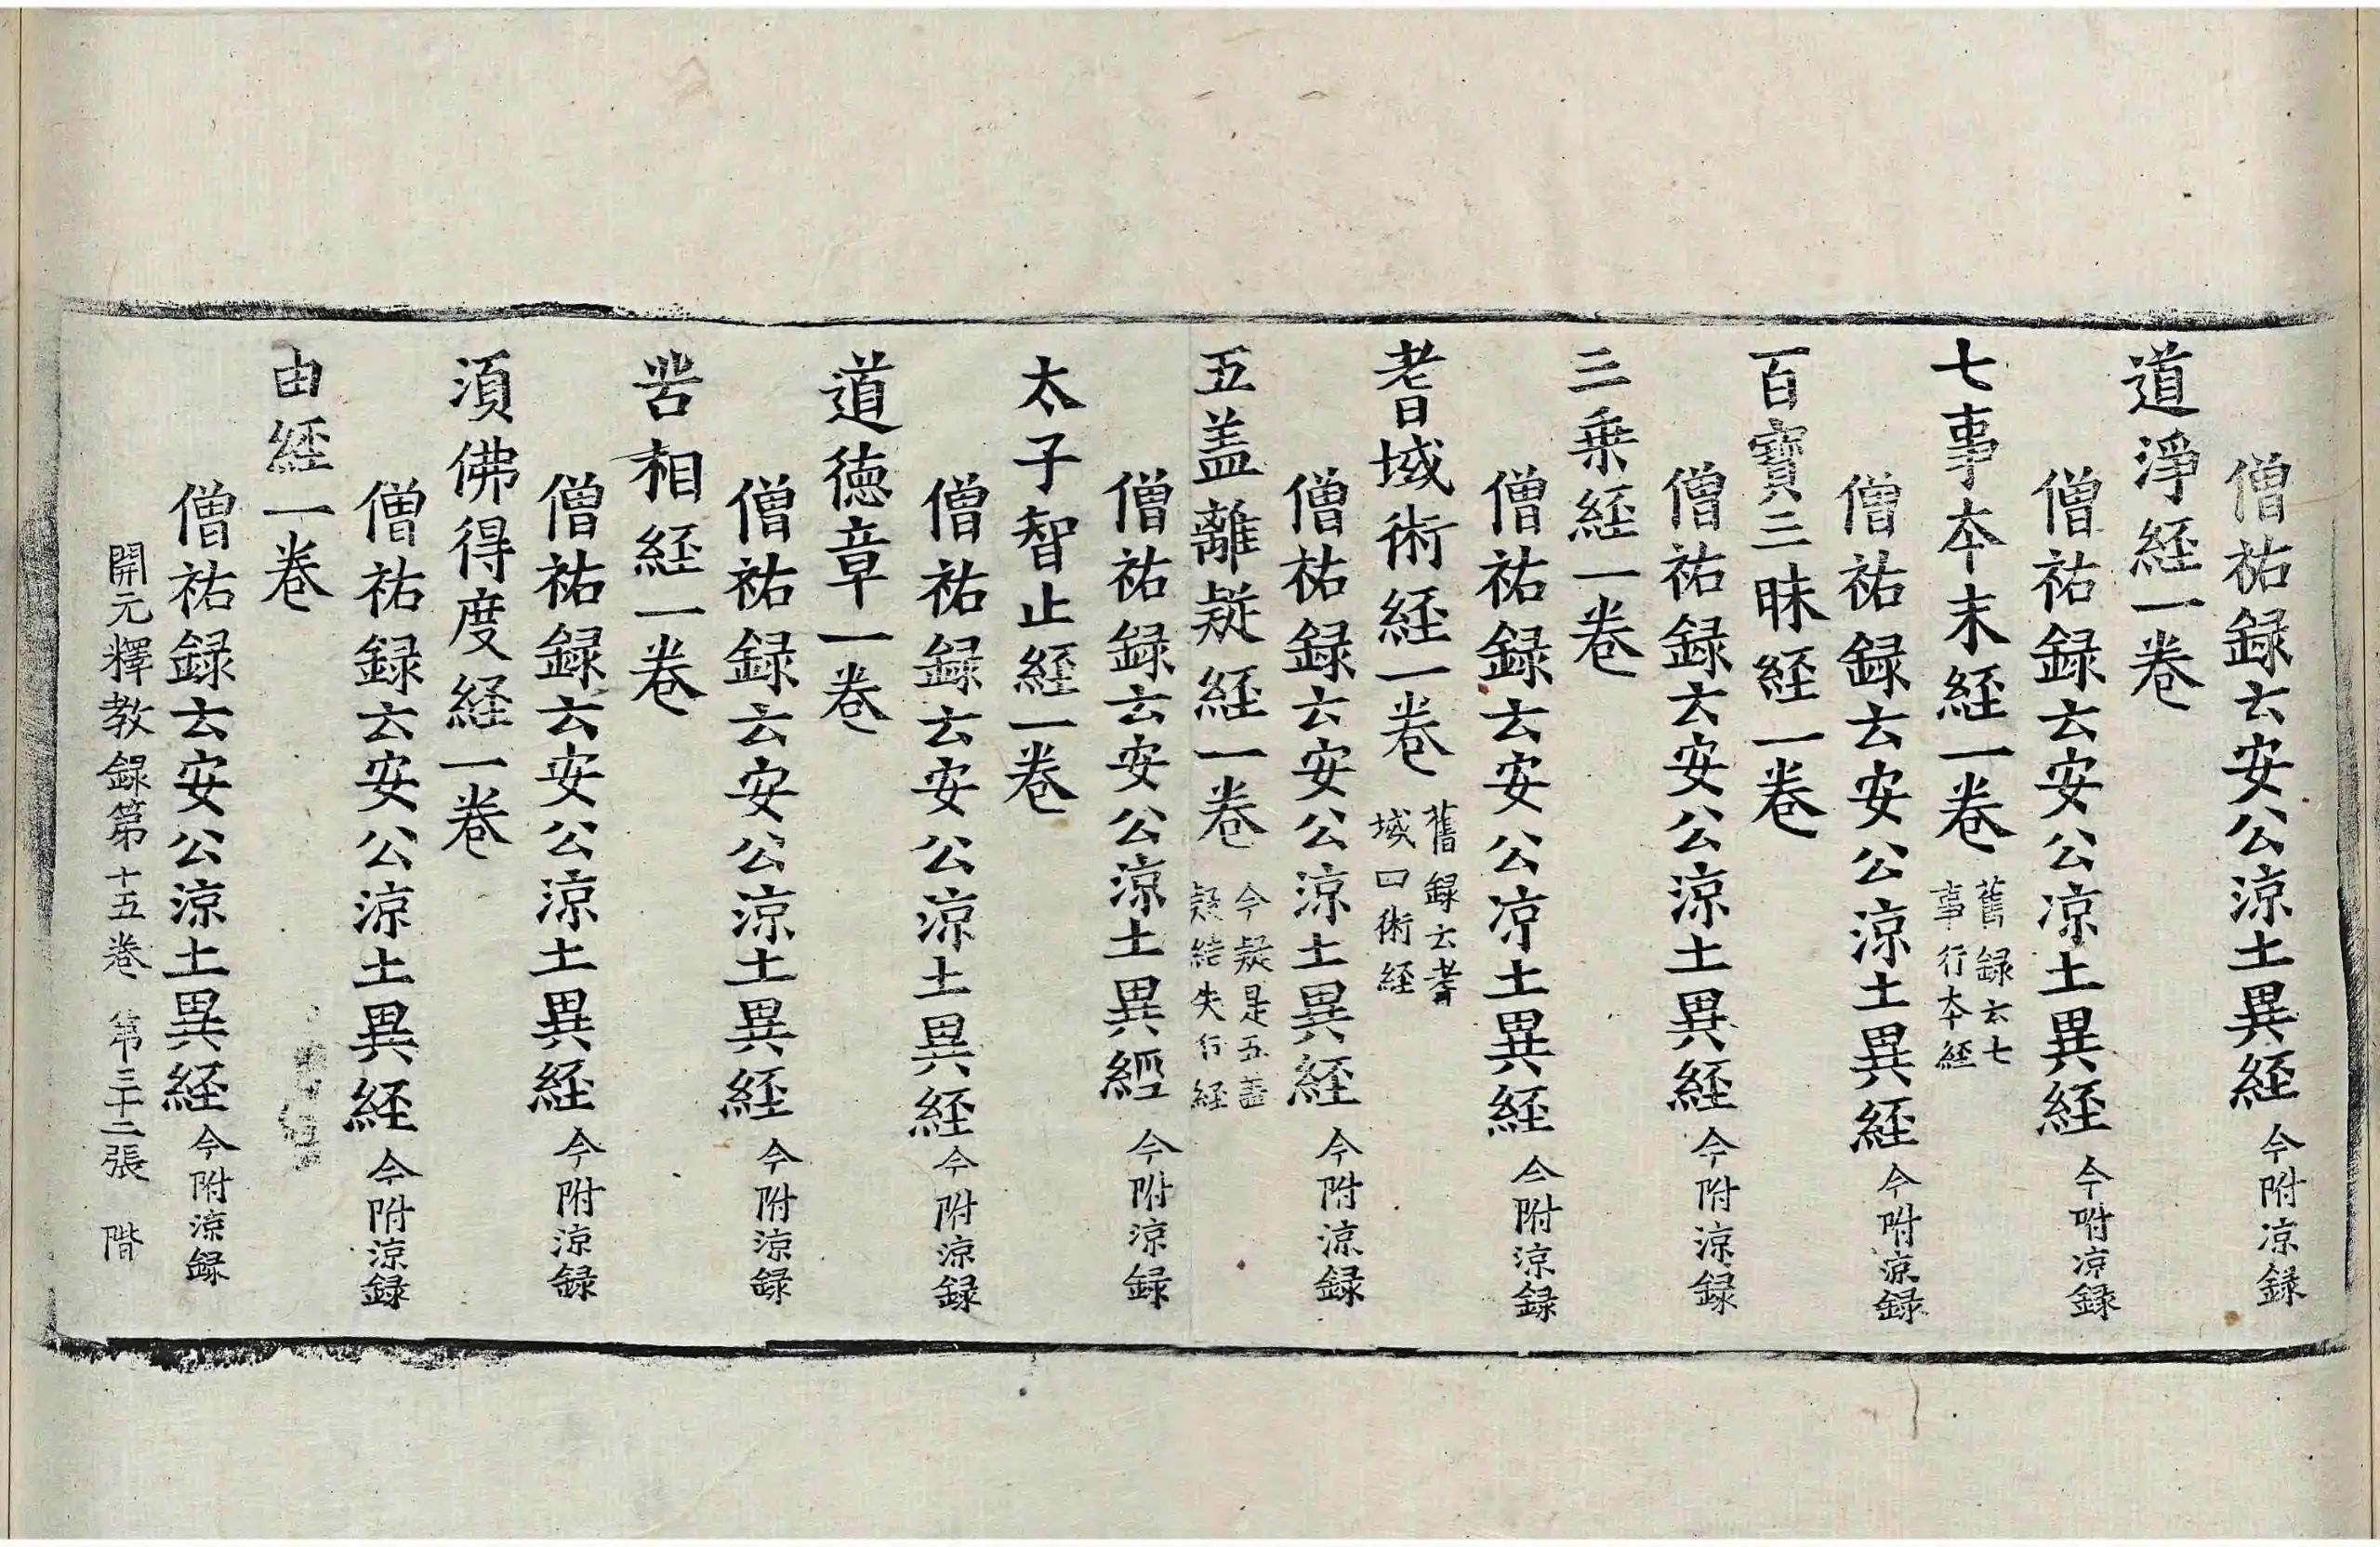 僧祐録云安公涼土異経今附涼録
道淨経一卷
僧祐録云安公涼土異経今附涼録
七事本末経一卷舊録云七事行本経
僧祐録云安公涼土異経今附涼録
百寶三昧経一卷
僧祐録云安公涼土異経今附涼録
三乗経一卷
僧祐録云安公涼土異経今附涼録
耆域術経一卷舊録云耆域四術経
僧祐録云安公涼土異経今附涼録
五盖離疑経一卷今疑是五蓋疑結失行経
僧祐録云安公涼土異經今附涼録
太子智止経一卷
僧祐録云安公涼土異経今附涼録
道德章一卷
僧祐録云安公涼土異経今附涼録
苦相経一卷
僧祐録云安公涼土異経今附涼録
湏佛得度経一卷
僧祐録云安公涼土異経今附涼録
由経一卷
僧祐録云安公涼土異経今附涼録
開元釋教録第十五卷 第三十二張 階